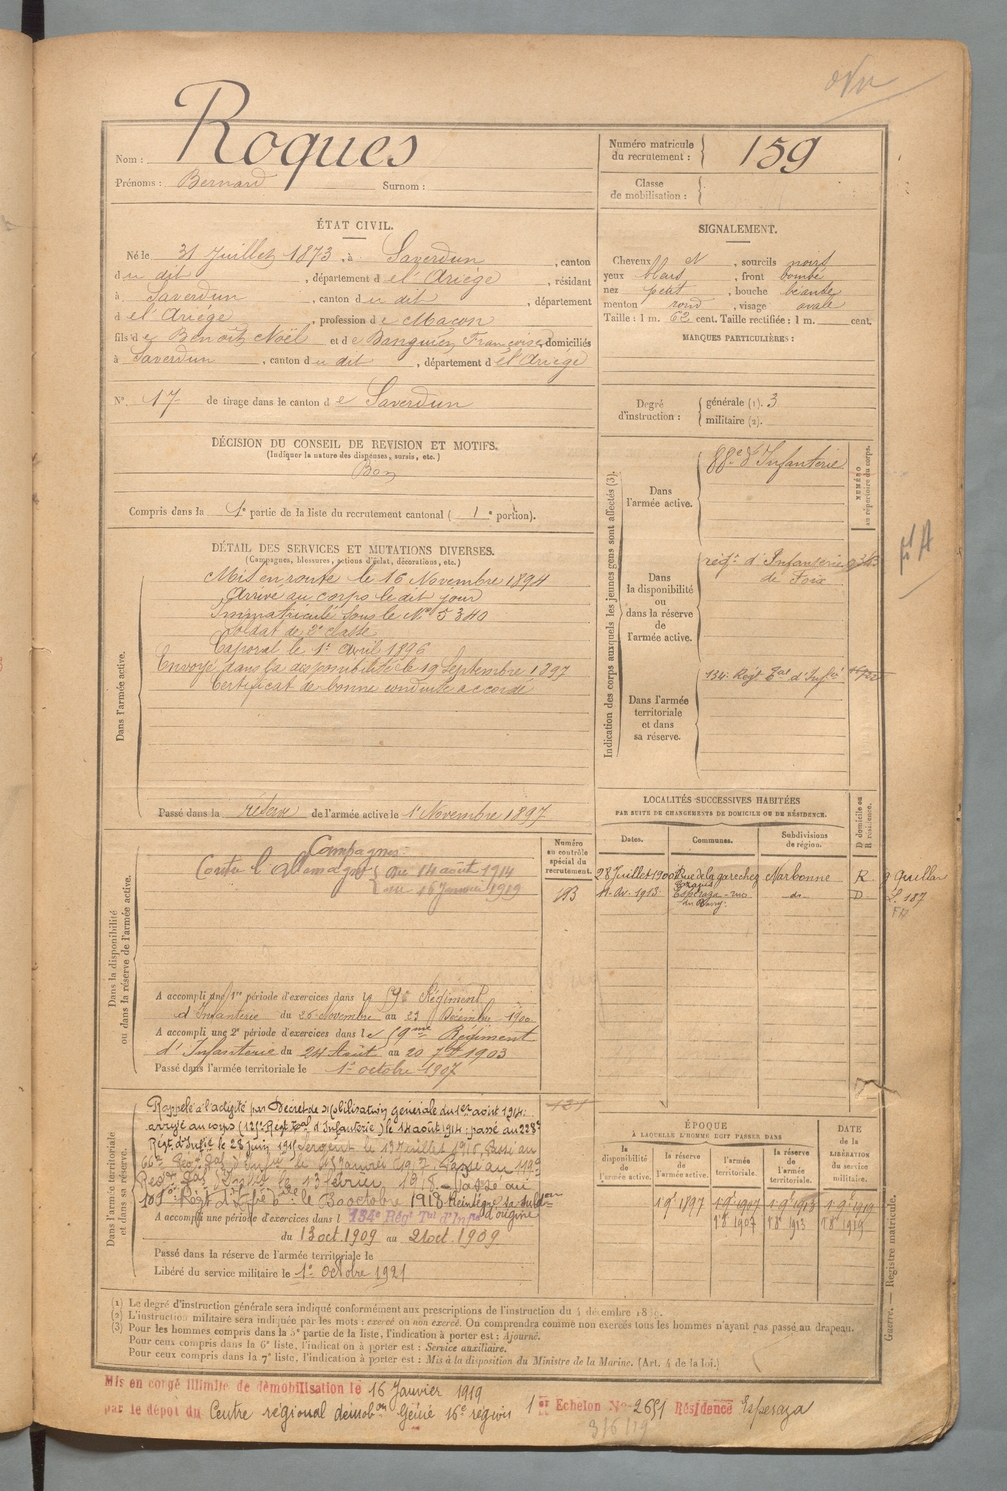 Nom : Roques
Prénoms : Bernard Surnom :
Numéro matricule du recrutement : 159
Classe de mobilisation :
ÉTAT CIVIL.
Né le 31 Juillet 1873, à Saverdun, canton
du dit, département de l'Ariège, résidant
à Saverdun, canton du dit, département
de l'Ariège, profession de Maçon
fils de Benoît Noël et de Banquier Françoise, domiciliés
à Saverdun, canton du dit, département de l'Ariège
N° 17 de tirage dans le canton de Saverdun
SIGNALEMENT.
Cheveux N, sourcils noirs
yeux, front bombé
nez petit, bouche béante
menton rond, visage ovale
Taille : 1 m. 62 cent. Taille rectifiée : 1 m. cent.
MARQUES PARTICULIÈRES :
Degré d'instruction : générale (1). 3
militaire (2).
DÉCISION DU CONSEIL DE REVISION ET MOTIFS.
(Indiquer la nature des dispenses, sursis, etc.)
Bon
Compris dans la 1e partie de la liste du recrutement cantonal ( 1e portion).
DÉTAIL DES SERVICES ET MUTATIONS DIVERSES.
(Campagnes, blessures, actions d'éclat, décorations, etc.)
Dans l'armée active.
Mis en route le 16 Novembre 1894
Arrivé au corps le dit jour
Immatriculé sous le No 5340
Soldat de 2e classe
Caporal le 1er Avril 1896
Envoyé dans la disponibilité le 19 Septembre 1897
Certificat de bonne conduite accordé
Passé dans la réserve de l'armée active le 1er Novembre 1897
Indication des corps auxquels les jeunes gens sont affectés (3).
Dans l'armée active.
88e d'Infanterie
NUMÉRO au répertoire du corps.
Dans la disponibilité ou dans la réserve de l'armée active.
régt d'Infanterie
de Foix
Dans l'armée territoriale et dans sa réserve.
134e Régt Tal d'Infie
LOCALITÉS SUCCESSIVES HABITÉES
PAR SUITE DE CHANGEMENTS DE DOMICILE OU DE RÉSIDENCE.
Dates. Communes. Subdivisions de région. D domicile ou R résidence.
28 Juillet 1900 Narbonne R g. Quillan
Av. 1913 Espéraza do D S. 187
Dans la disponibilité ou dans la réserve de l'armée active.
Numéro au contrôle spécial du recrutement.
193
Campagnes
Contre l'Allemagne du 14 août 1914
au 16 Janvier 1919
A accompli une 1re période d'exercices dans le 59e Régiment
d'Infanterie du 26 Novembre au 23 Décembre 1900
A accompli une 2e période d'exercices dans le 59me Régiment
d'Infanterie du 24 Août au 20 7bre 1903
Passé dans l'armée territoriale le 1er octobre 1907
Dans l'armée territoriale et dans sa réserve.
Rappelé à l'activité par Décret de Mobilisation générale du 1er août 1914:
arrivé au corps le 14 août 1914: passé au
Régt d'Infie le 28 juin Sergent le Juillet Passé au
le Janvier 1917 Passé au
le 13 février 1918 Passé au
le 30 octobre 1918 Réintégré sa subdon
d'origine
A accompli une période d'exercices dans l 134e Régt Tal d'Infie
du 13 oct. 1909 au 21 oct. 1909
Passé dans la réserve de l'armée territoriale le
Libéré du service militaire le 1er Octobre 1921
ÉPOQUE
À LAQUELLE L'HOMME DOIT PASSER DANS
la disponibilité de l'armée active. la réserve de l'armée active. l'armée territoriale. la réserve de l'armée territoriale.
DATE de la LIBÉRATION du service militaire.
1 9e 1897 1 9e 1907 1 9e 1913 1 9e 1919
1 8e 1907 1 8e 1913 1 8e 1919
Guerre. — Registre matricule.
(1) Le degré d'instruction générale sera indiqué conformément aux prescriptions de l'instruction du 4 décembre 1889.
(2) L'instruction militaire sera indiquée par les mots : exercé ou non exercé. On comprendra comme non exercés tous les hommes n'ayant pas passé au drapeau.
(3) Pour les hommes compris dans la 5e partie de la liste, l'indication à porter est : Ajourné.
Pour ceux compris dans la 6e liste, l'indication à porter est : Service auxiliaire.
Pour ceux compris dans la 7e liste, l'indication à porter est : Mis à la disposition du Ministre de la Marine. (Art. 4 de la loi.)
Mis en congé illimité de démobilisation le 16 Janvier 1919
par le dépot du Centre régional démobon Génie 16e région 1er Echelon No 2651 Résidence Espéraza
3/6/19